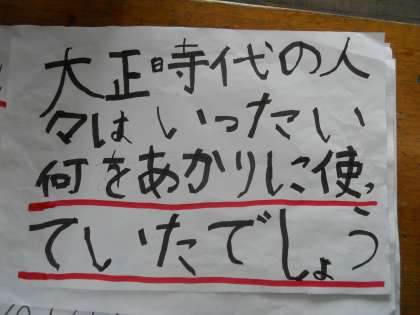 大正時代の人
々はいったい
何をあかりに使っ
ていたでしょう